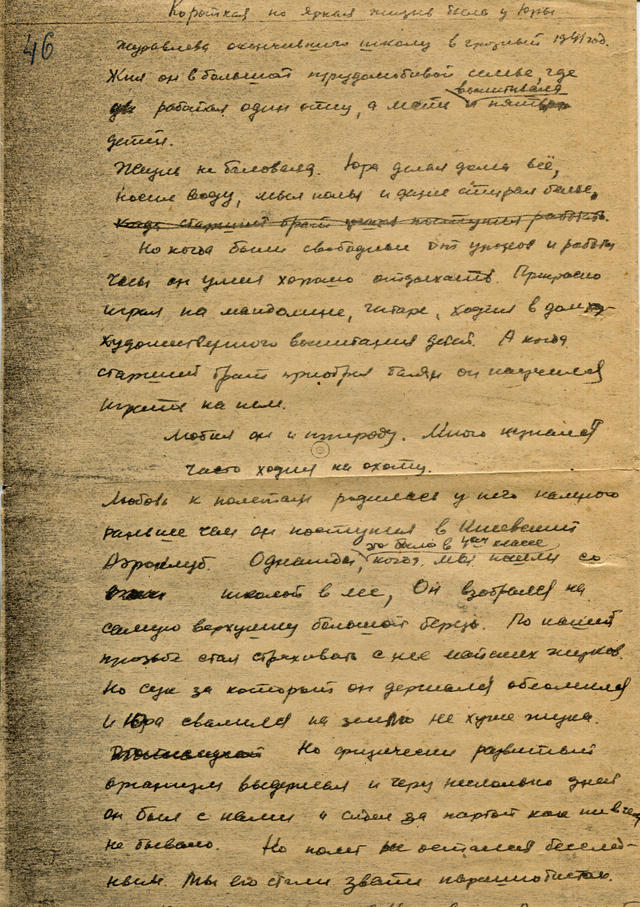 Короткая но яркая жизнь была у Юры
46
Журавлева окончившего школу в грозный 1941 год.
Жил он в большой трудолюбивой семье, где
работал один отец, а мать воспитывала пятеро
детей.
Жизнь не баловала. Юра делал дома всё,
носил воду, мыл полы и даже стирал белье,
когда старший брат уехал поступил работать.
Но когда были свободные от уроков и работы
часы он умел хорошо отдыхать. Прекрасно
играл на мандолине, гитаре, ходил в дом
художественного воспитания детей. А когда
старший брат приобрел баян он научился
играть на нем.
Любил он и природу. Много купался
часто ходил на охоту.
Любовь к полетам родилась у него намного
раньше чем он поступил в Киевский
Аэроклуб. Однажды, это было в 4ом классе когда мы пошли со
школой в лес, Он взобрался на
самую верхушку большой березы. По нашей
прозьбе стал стряхивать с нее майских жуков.
Но сук за который он держался обломился
и Юра свалился на землю не хуже жука.
Но физически развитый
организм выдержал и через несколько дней
он был с нами и сидел за партой как ни в чем
не бывало. Но полет не остался бесслед-
ным. Мы его стали звать парашютистом.